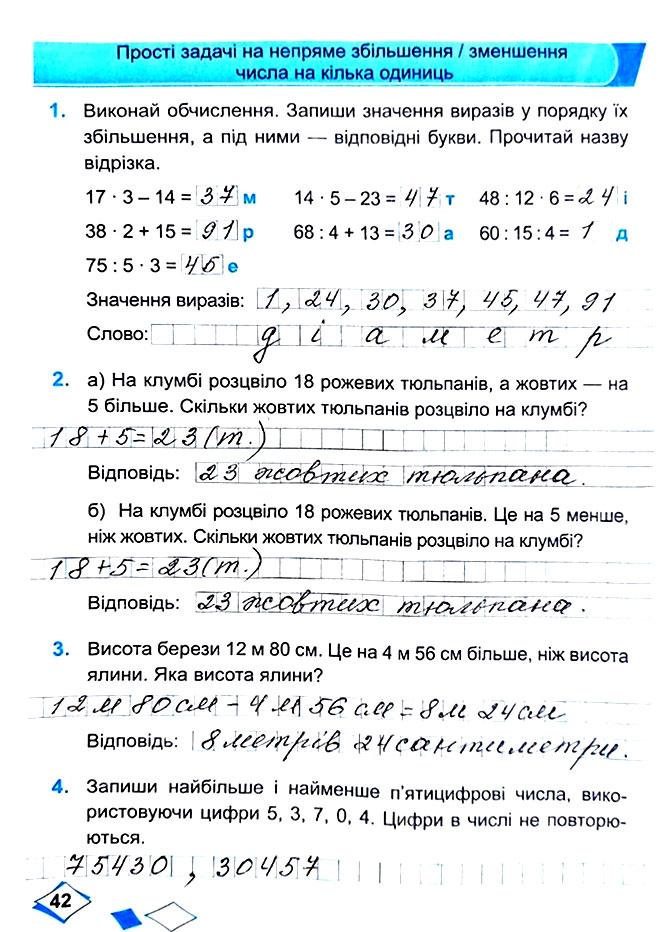 Прості задачі на непряме збільшення / зменшення
числа на кілька одиниць
1. Виконай обчислення. Запиши значення виразів у порядку їх
збільшення, а під ними — відповідні букви. Прочитай назву
відрізка.
17 · 3 – 14 = 37 м 14 · 5 – 23 = 47 т 48 : 12 · 6 = 24 і
38 · 2 + 15 = 91 р 68 : 4 + 13 = 30 а 60 : 15 : 4 = 1 д
75 : 5 · 3 = 45 е
Значення виразів: 1, 24, 30, 37, 45, 47, 91
Слово: д і а м е т р
2. а) На клумбі розцвіло 18 рожевих тюльпанів, а жовтих — на
5 більше. Скільки жовтих тюльпанів розцвіло на клумбі?
18+5=23(т.)
Відповідь: 23 жовтих тюльпана.
б) На клумбі розцвіло 18 рожевих тюльпанів. Це на 5 менше,
ніж жовтих. Скільки жовтих тюльпанів розцвіло на клумбі?
18+5=23(т.)
Відповідь: 23 жовтих тюльпана.
3. Висота берези 12 м 80 см. Це на 4 м 56 см більше, ніж висота
ялини. Яка висота ялини?
12м 80см – 4м 56см = 8м 24см
Відповідь: 8 метрів 24 сантиметри.
4. Запиши найбільше і найменше п’ятицифрові числа, вико-
ристовуючи цифри 5, 3, 7, 0, 4. Цифри в числі не повторю-
ються.
75430, 30457
42